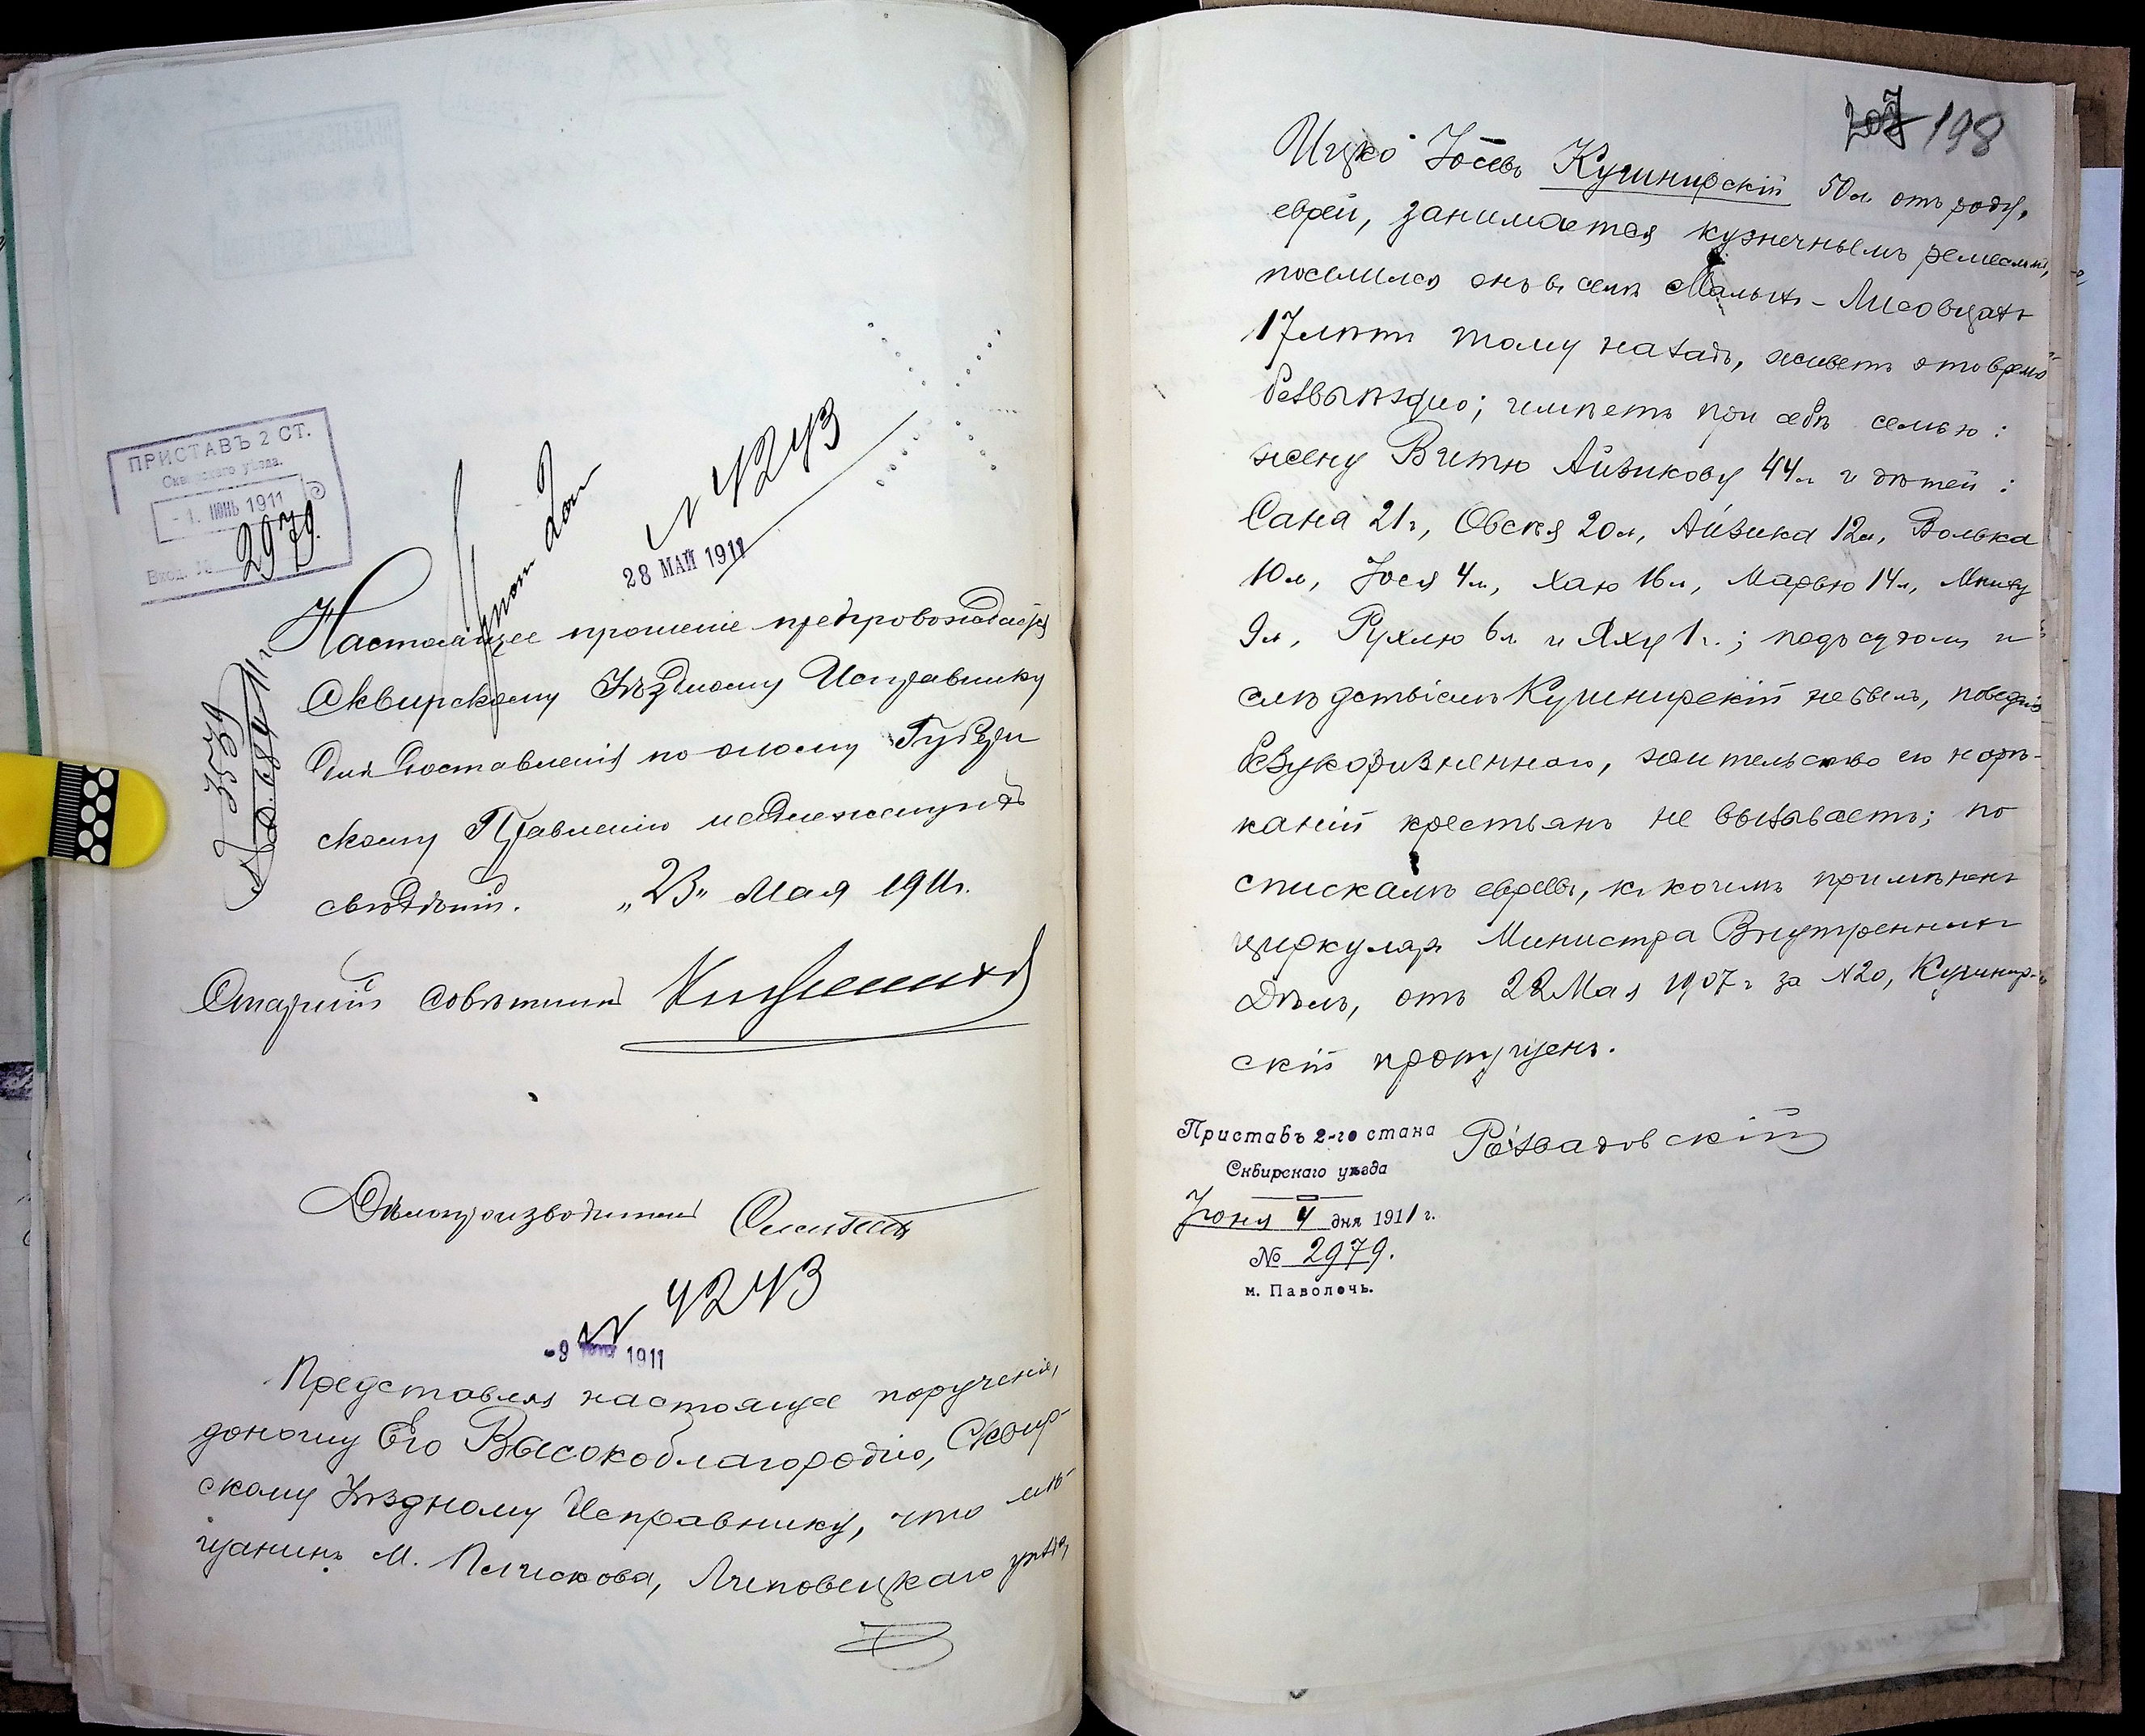 ПРИСТАВЪ 2 СТ.
Сквирскаго уѣзда.
- 1. ІЮНЬ 1911
Вход. №
2979.
№ 4243
28 МАЙ 1911
Настоящее прошеніе препровождается
Сквирскому Уѣздному Исправнику
для доставленія по оному Губерн
скому Правленію надлежащихъ
свѣдѣній. „23„ Мая 1911г.
Старшій Совѣтникъ
Дѣлопроизводитель
№ 4243
-9 1911
Представляя настоящее порученіе,
доношу Его Высокоблагородію, Сквир-
скому Уѣздному Исправнику, что мѣ-
щанинъ м. Пятискова?, Липовецкаго уѣзда
207 198
Ицко Іосевъ Кушнирскій 50л. отъ роду,
еврей, занимается кузнечнымъ ремесломъ,
поселился онъ въ селѣ Малыхъ-Лисовцахъ
17 лѣтъ тому назадъ, живетъ это время
безвыѣздно; имѣетъ при себѣ семью:
жену Витю Айзикову 44л и дѣтей:
Сана 21г, Овсея 20л, Айзика 12л, Волька
10л, Іося 4л, Хаю 16л, Марью 14л,
9л, Рухлю 6л и Яху 1г.; подъ судомъ и
слѣдствіемъ Кушнирскій не былъ, поведенія
безукоризненнаго, жительство его норѣ-
каній крестьянъ не вызываетъ; по
спискамъ евреевъ, къ коимъ примѣненъ
циркуляръ Министра Внутреннихъ
Дѣлъ, отъ 22 Мая 1907г за №20, Кушнир-
скій пропущенъ.
Приставъ 2-го стана Развадовскій
Сквирскаго уѣзда
Іюня 4 дня 1911 г.
№ 2979.
м. Паволочь.